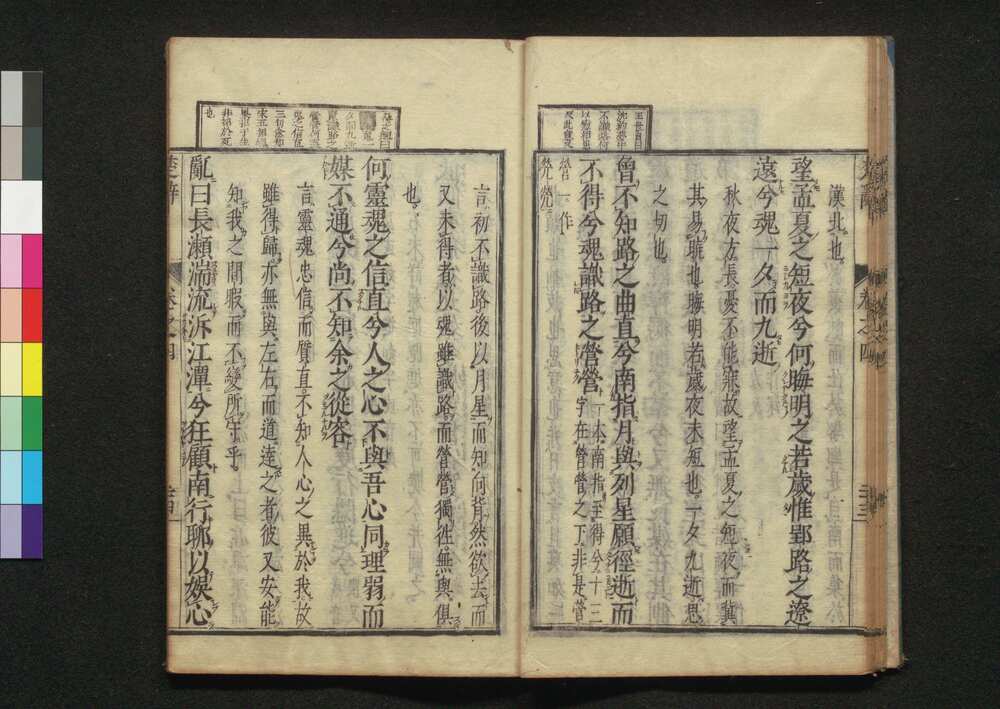 漢北也
望孟夏之短夜兮何晦明之若歲惟郢路之遼
遠兮魂一夕而九逝
秋夜方長憂不能寐故望孟夏之短夜而冀
其易曉也晦明若歲夜未短也一夕九逝思
之切也
曾不知路之曲直兮南指月與列星願徑逝而
不得兮魂識路之營營
一本南指至得兮十三
字在營營之下非是營
營一作
煢煢
言初不識路後以月星而知向背然欲去而
又未得者以魂雖識路而營營獨徃無與俱
也
何靈魂之信直兮人之心不與吾心同理弱而
媒不通兮尚不知余之從容
言靈魂忠信而質直不知人心之異於我故
雖得歸亦無與左右而道達之者彼又安能
知我之閒暇而不變所守乎
亂曰長瀬湍流泝江潭兮狂顧南行聊以娛心
楚辭
卷之四